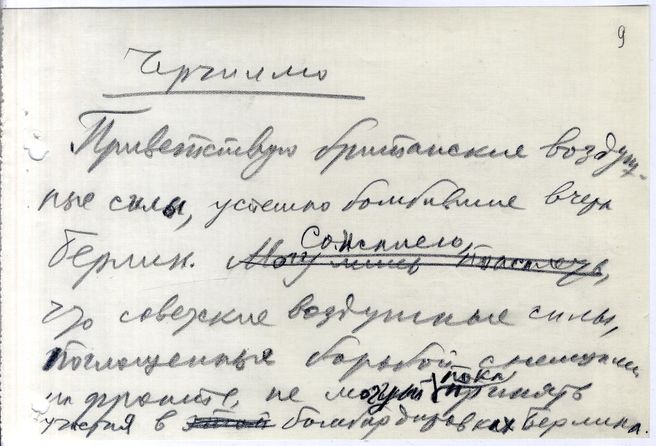 9
Черчиллю
Приветствую британские воздуш-
ные силы, успешно бомбившие вчера
Берлин. Могу лишь
Сожалею,
что советские воздушные силы,
поглощенные борьбой с немцами
на фронте, не могут пока принять
участия в этой бомбардировках Берлина.